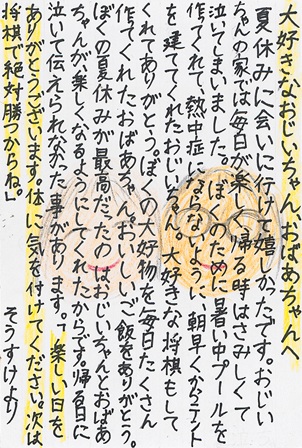 大好きなおじいちゃん、おばあちゃんへ
夏休みに会いに行けて嬉しかったです。おじい
ちゃんの家では毎日が楽しく、帰る時はさみしくて
泣いてしまいました。ぼくのために暑い中プールを
作ってくれて、熱中症にならないように、朝早くからテント
を建ててくれたおじいちゃん。大好きな将棋もして
くれてありがとう。ぼくの大好物を毎日たくさん
作ってくれたおばあちゃん。おいしいご飯をありがとう。
ぼくの夏休みが最高だったのはおじいちゃんとおばあ
ちゃんが楽しくなるようにしてくれたからです。帰る日に
泣いて伝えられなかった事があります。「楽しい日を
ありがとうございます。体に気を付けてください。次は
将棋で絶対勝つからね。」
そうすけより